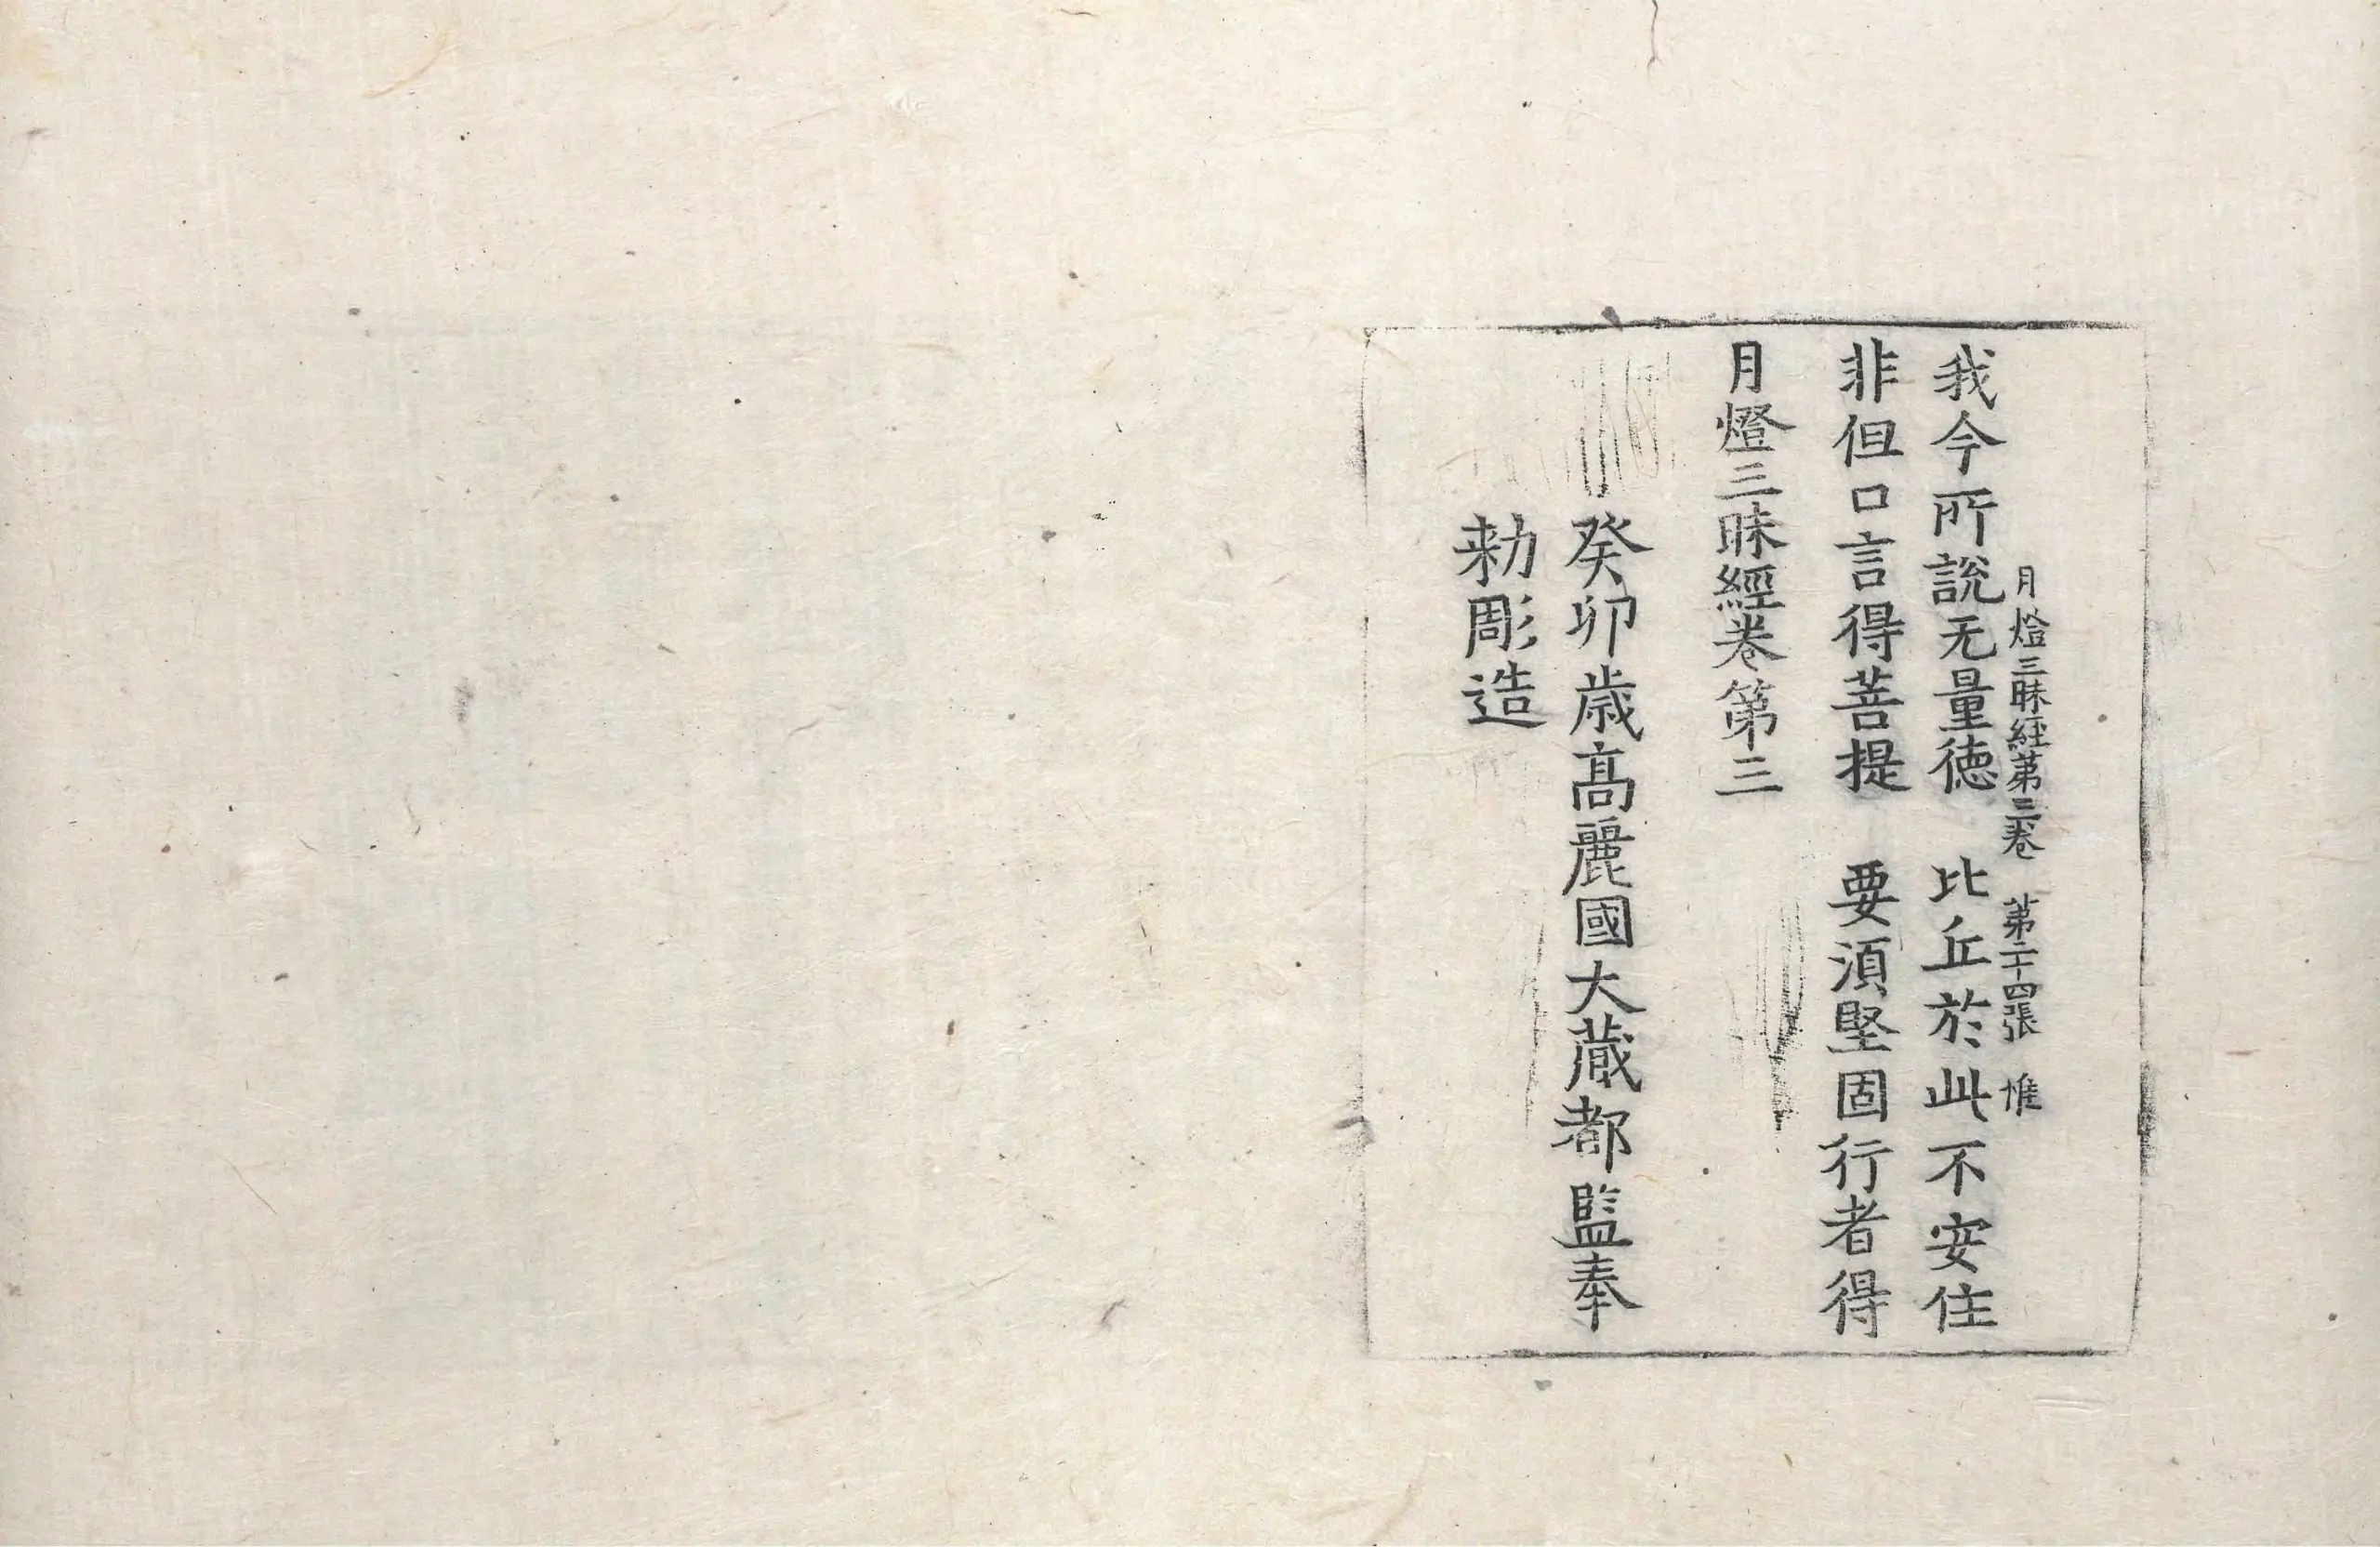 月燈三昧經第三卷 第二十四張 惟
我今所說无量德 比丘於此不安住
非但口言得菩提 要須堅固行者得
月燈三昧經卷第三
癸卯歲高麗國大藏都監奉
勅彫造